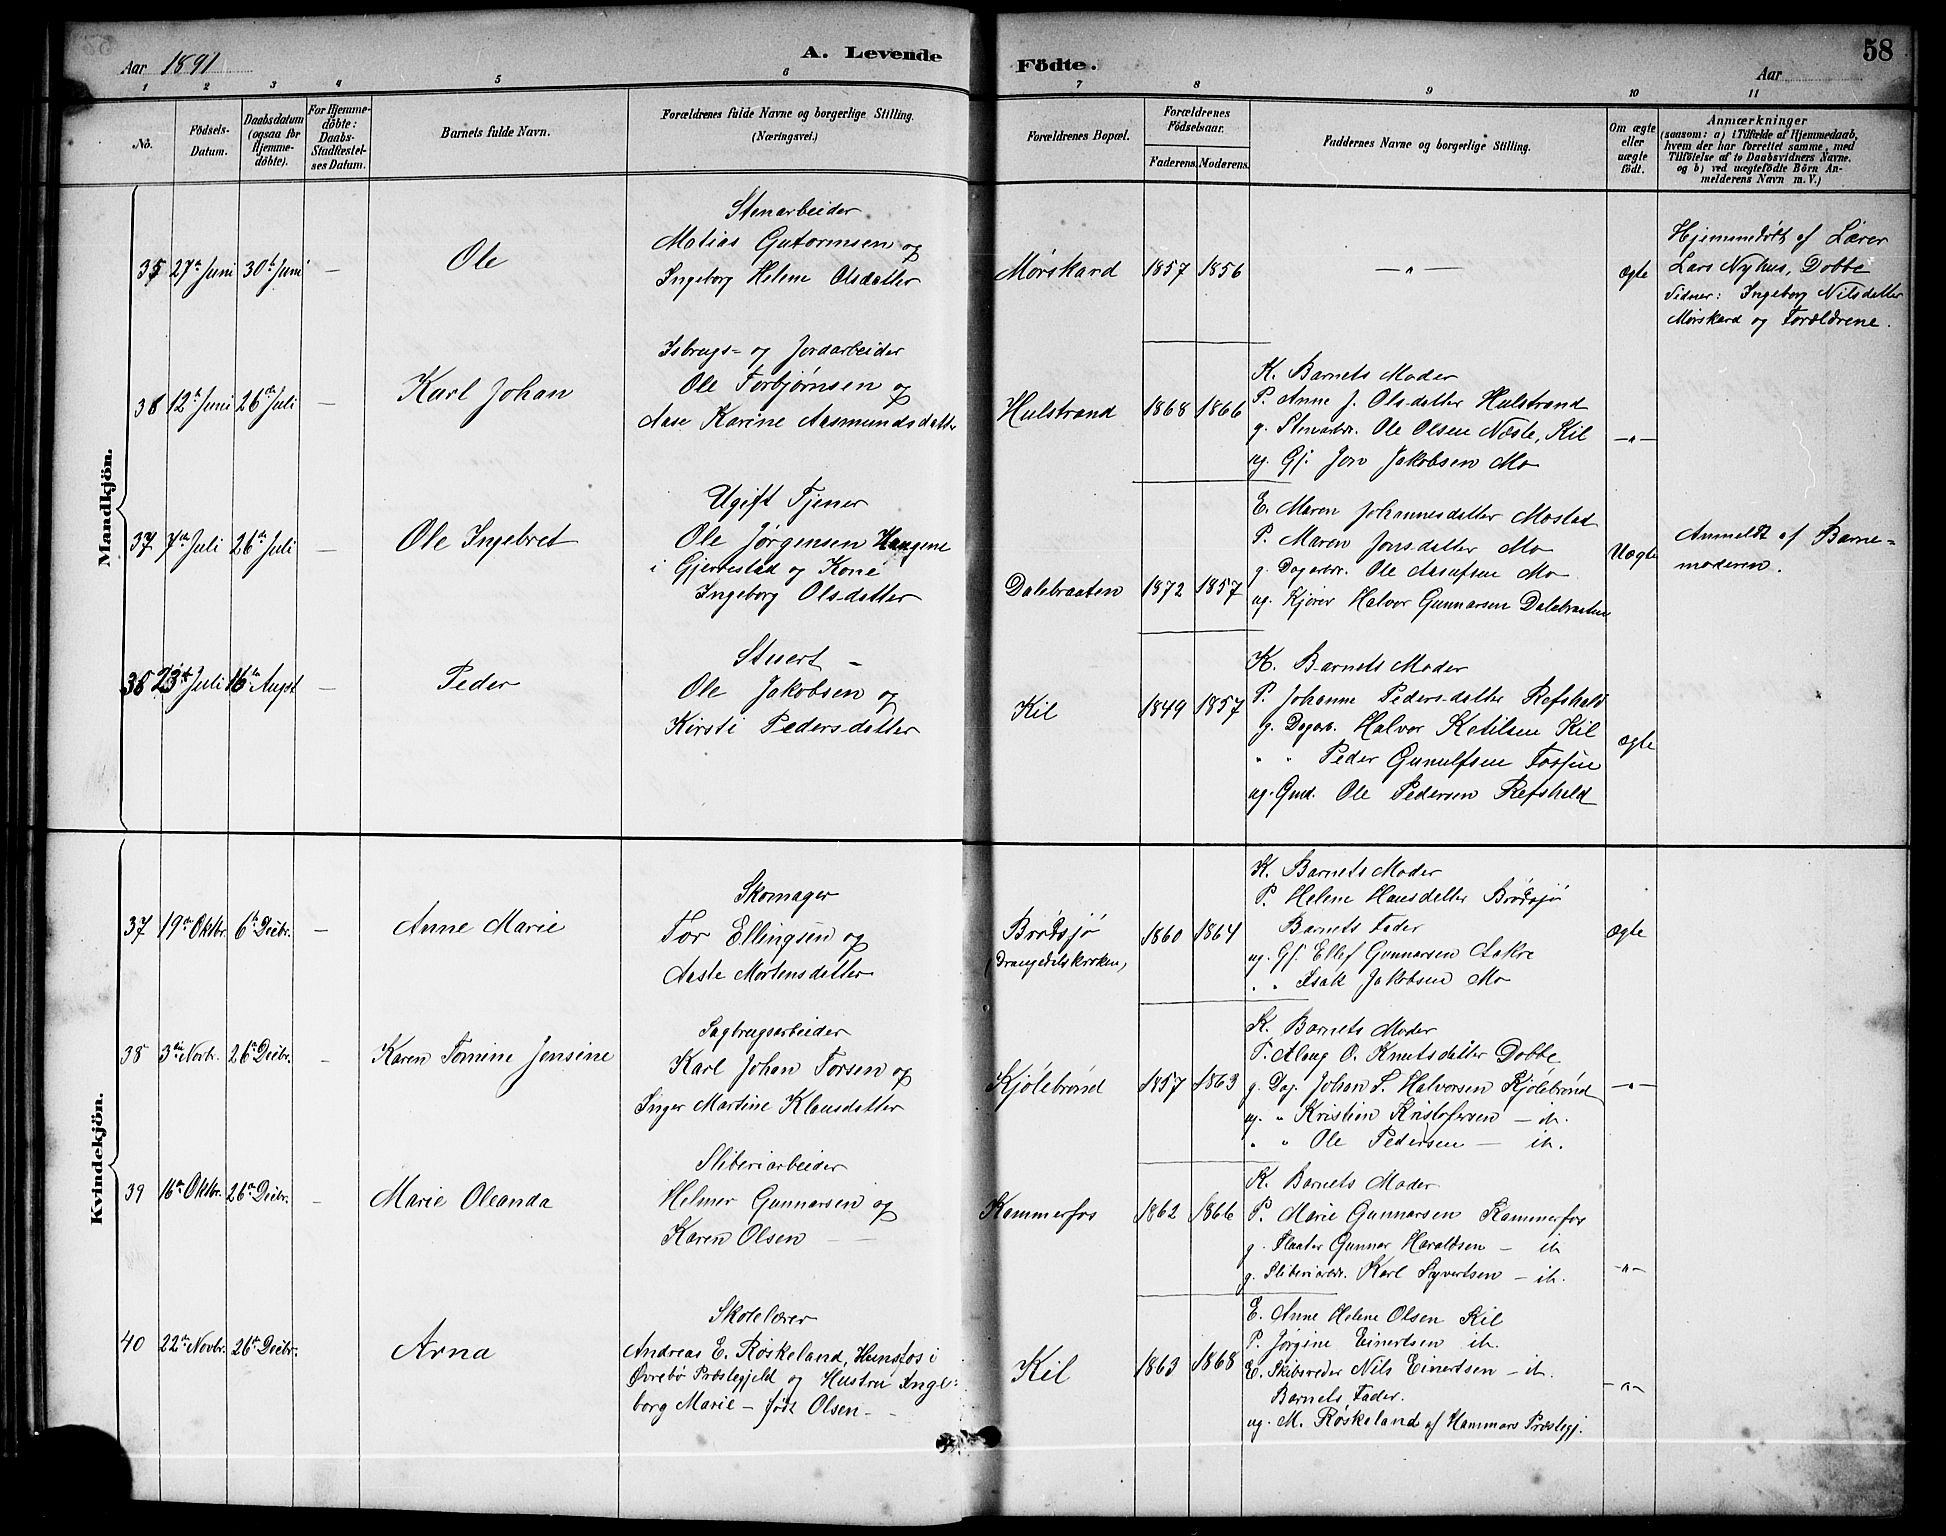 Aar 1891
A. Levende
Födte.
58
Aar
1 2 3 4 5 6 7 8 9 10 11
No.
Födsels-Datum.
Daabsdatum (ogsaa för Hjemme-döbte).
For Hjemme-döbte: Daabs-Stadfæstel-ses Datum.
Barnets fulde Navn.
Forældrenes fulde Navne og borgerlige Stilling.
(Næringsvei.)
Forældrenes Bopæl.
Forældrenes Födselsaar.
Faderens. Moderens.
Faddernes Navne og borgerlige Stilling.
Om ægte eller uægte födt.
Anmærkninger
(saasom: a) i Tilfælde af Hjemmedaab,
hvem der har forrettet samme, med
Tilföielse af to Daabsvidners Navne.
og b) ved uægtefödte Börn An-
melderens Navn m. V.)
Mandkjön.
35 27de Juni 30te Juni — Ole
Stenarbeider
Matias Gutormsen og
Ingeborg Helene Olsdatter
Mørskard 1857 1856 — " — ægte
Hjemmedøbt af Lærer
Lars Nyhus, Dobbe
Vidner: Ingeborg Nilsdatter
Mørskard og Forældrene.
36 12te Juni 26de Juli — Karl Johan
Isbrugs- og Jordarbeider
Ole Torbjørnsen og
Aase Karine Aasmundsdatter
Hulstrand 1868 1866
K. Barnets Moder
P. Anne J. Olsdatter Hulstrand
g. Stenarbr. Ole Olsen Næste, Kil —"—
ug. Gj. Jon Jakobsen Mo
37 7de Juli 26de Juli — Ole Ingebret
Ugift Tjener
Ole Jørgensen Haugene
i Gjerrestad og Kone
Ingeborg Olsdatter
Dalebraaten 1872 1857
E. Maren Johannesdatter Mostad
P. Maren Jonsdatter Mo
g. Dagarbr. Ole Aanufsen Mo
ug. Kjører Halvor Gunnarsen Dalebraaten
Uægte
Anmeldt af Barne-
moderen.
38 23de Juli 16de Augst — Peder
Stuert —
Ole Jakobsen og
Kirsti Pedersdatter
Kil 1849 1857
K. Barnets Moder
P. Johanne Pedersdatter Refsheld
g. Dagarb. Halvor Ketilsen Kil
" " Peder Gunulfsen
ug. Gmd. Ole Pedersen Refsheld
ægte
Kvindekjön.
37 19de Oktbr. 6te Decbr. — Anne Marie
Skomager
Tor Ellingsen og
Aaste Mortensdatter
Brødsjø
(Drangedalskirken)
1860 1864
K. Barnets Moder
P. Helene Hansdatter Brødsjø
Barnets Fader
ug. Gj. Ellef Gunnarsen Aakre
" " Isak Jakobsen Mo
ægte
38 3die Novbr. 26de Decbr. — Karen Tomine Jensine
Sagbrugsarbeider
Karl Johan Torsen og
Inger Martine Klausdatter
Kjølebrønd 1857 1863
K. Barnets Moder
P. Alaug O. Knutsdatter Dobbe
g. Dag. Johan S. Halvorsen Kjølebrønd —"—
ug. " Kristian Kristofersen — ib.
" " Ole Pedersen — ib.
39 16de Oktbr. 26de Decbr. — Marie Oleanda
Sliberiarbeider
Helmer Gunnarsen og
Karen Olsen — —
Kammerfos 1862 1866
K. Barnets Moder
P. Marie Gunnarsen Kammerfos
g. Flaater Gunnar Haraldsen — ib
g. Sliberiarbr. Karl Syvertsen — ib. —"—
40 22de Novbr. 26de Decbr. Arna
Skolelærer
Andreas E. Røskeland, Hunsfos i
Øvrebø Præstegjeld og Hustru Inge-
borg Marie — født Olsen —
Kil 1863 1868
E. Anne Helene Olsen Kil
P. Jørgine Einertsen ib.
E. Skibsreder Nils Einertsen — ib.
Barnets Fader. —"—
ug. M. Røskeland af Hammars Præstegj.